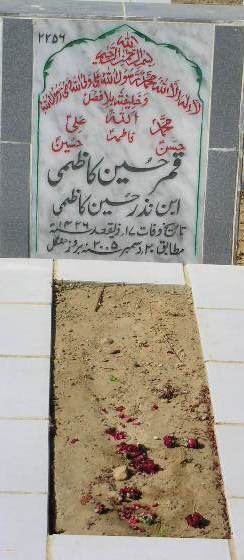 ۲۲۵۶
الله
بسم الله الرحمن الرحیم
لا اله الا الله محمد رسول الله علی ولی الله وصی رسول الله
و خلیفته بلا فصل
الله
محمد فاطمہ علی
حسن حسین
قمر حسین کاظمی
ابن نذر حسین کاظمی
تاریخ وفات ۱۷ ذیقعد ۱۴۲۶ ھ
مطابق ۲۰ دسمبر ۲۰۰۵ سنہ بروز منگل